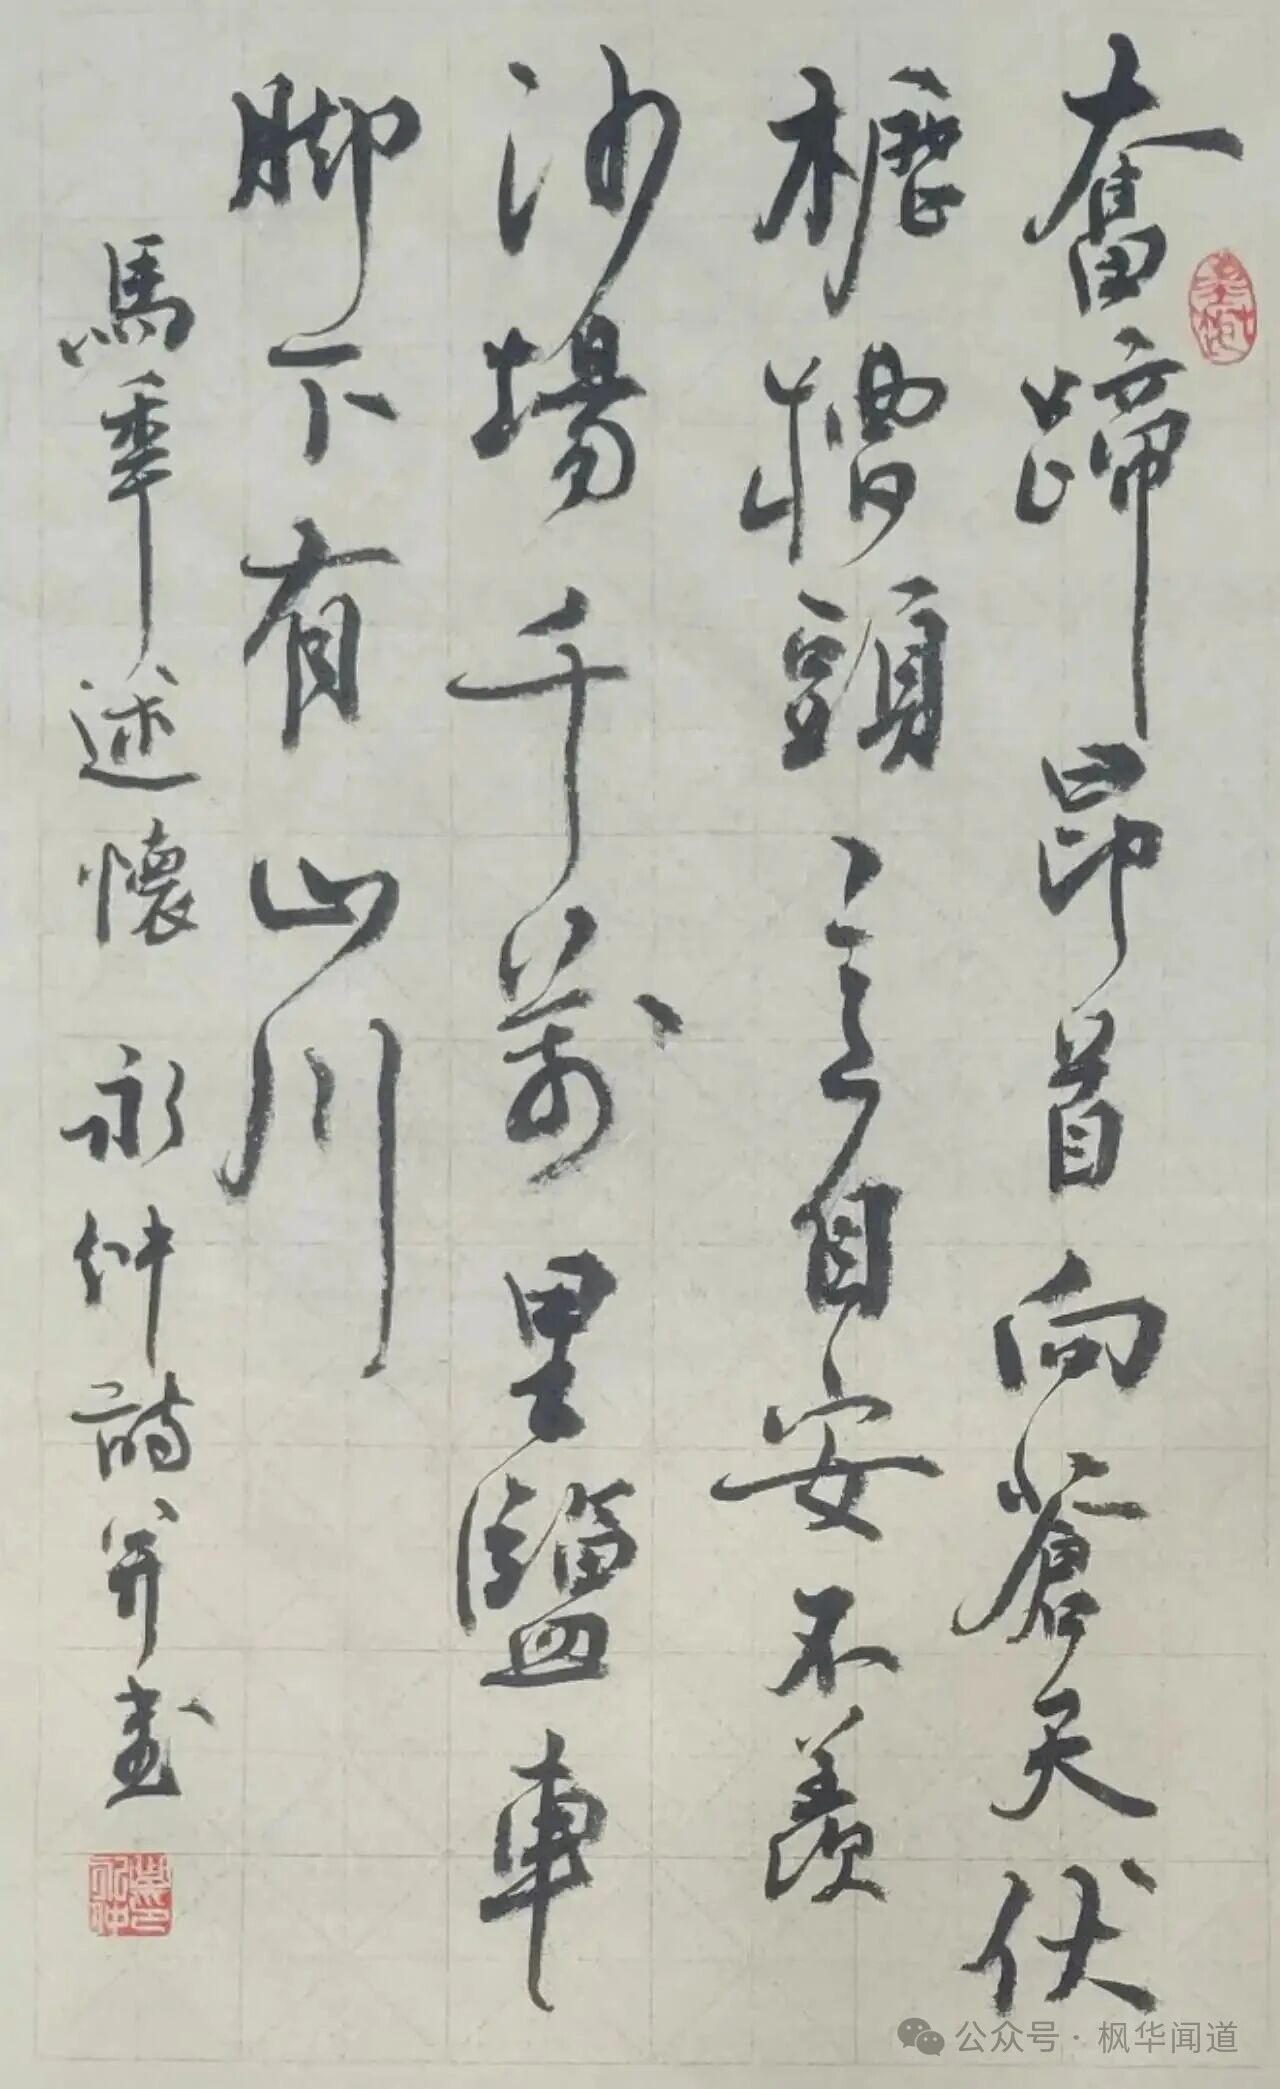 奮蹄昂首向蒼天伏
櫪槽頭意自安不羨
沙場千萬里鹽車
脚下有山川
馬年述懷 永仲詩并畫
公众号·枫华闻道